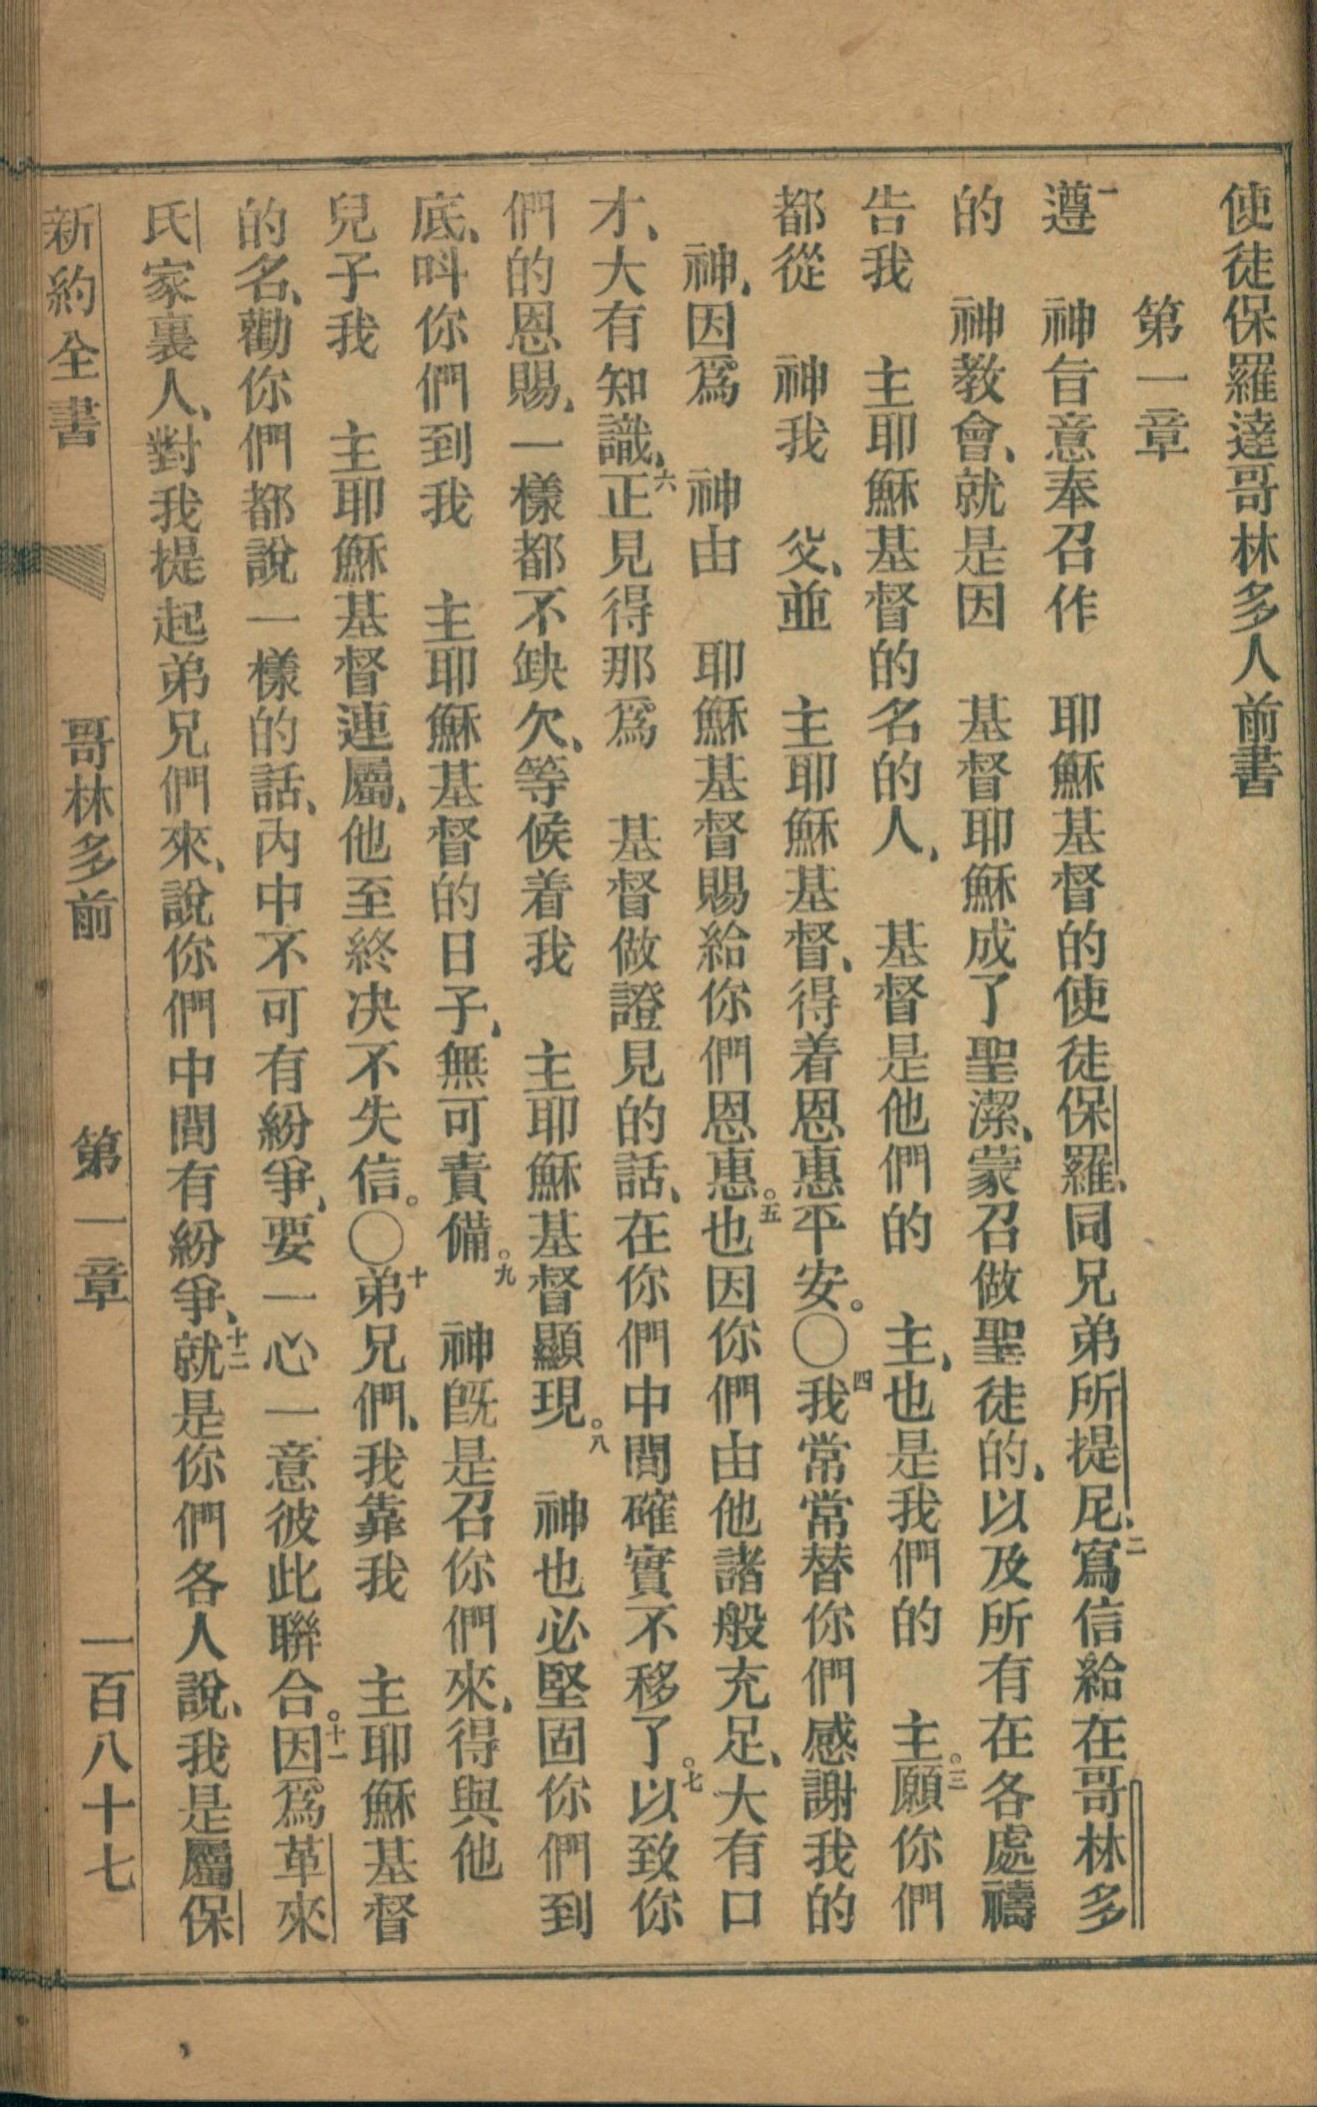 使徒保羅達哥林多人前書
第一章
一遵　神旨意奉召作　耶穌基督的使徒保羅、同兄弟所提尼、二寫信給在哥林多
的　神教會、就是因　基督耶穌成了聖潔、蒙召做聖徒的、以及所有在各處禱
告我　主耶穌基督的名的人、　基督是他們的　主、也是我們的　主。三願你們
都從　神我　父、並　主耶穌基督、得着恩惠平安。〇四我常常替你們感謝我的
神、因爲　神由　耶穌基督賜給你們恩惠。五也因你們由他諸般充足、大有口
才、大有知識、六正見得那爲　基督做證見的話、在你們中間確實不移了。七以致你
們的恩賜、一樣都不缺欠、等候着我　主耶穌基督顯現。八　神也必堅固你們到
底、呌你們到我　主耶穌基督的日子、無可責備。九　神旣是召你們來、得與他
兒子我　主耶穌基督連屬、他至終决不失信。〇十弟兄們、我靠我　主耶穌基督
的名、勸你們都說一樣的話、內中不可有紛爭、要一心一意彼此聯合。十一因爲革來
氏家裏人、對我提起弟兄們來、說你們中間有紛爭、十二就是你們各人說、我是屬保
新約全書　哥林多前　第一章　一百八十七